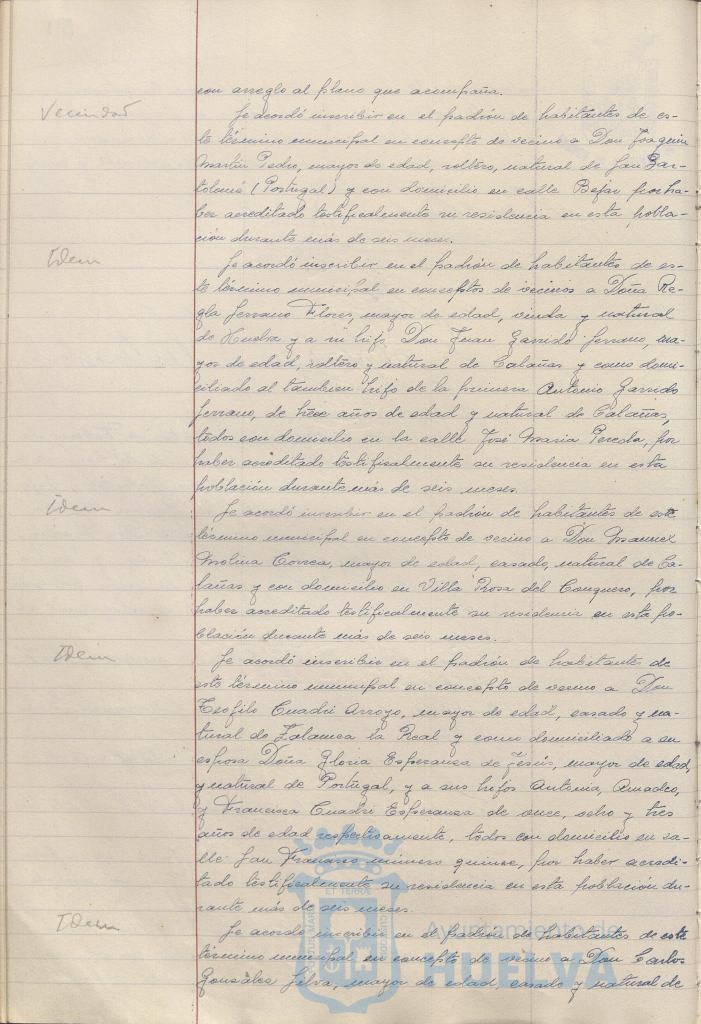 con arreglo al plano que acompaña.
Vecindad
Se acordó inscribir en el padrón de habitantes de es-
te término municipal en concepto de vecino a Don Joaquin
Martin Pedro, mayor de edad, soltero, natural de San Bar-
tolomé (Portugal) y con domicilio en calle Bejar por ha-
ber acreditado testificalmente su residencia en esta pobla-
ción durante más de seis meses.
Idem
Se acordó inscribir en el padrón de habitantes de es-
te término municipal en conceptos de vecinos a Doña Re-
gla Serrano Flores, mayor de edad, viuda y natural
de Huelva y a su hijo Don Juan Garrido Serrano, ma-
yor de edad, soltero y natural de Calañas y como domi-
ciliado al tambien hijo de la primera Antonio Garrido
Serrano, de trece años de edad y natural de Calañas,
todos con domicilio en la calle José Maria Pereda, por
haber acreditado testificalmente su residencia en esta
población durante más de seis meses.
Idem
Se acordó inscribir en el padrón de habitantes de este
término municipal en concepto de vecino a Don Manuel
Molina Correa, mayor de edad, casado, natural de Ca-
lañas y con domicilio en Villa Rosa del Conquero, por
haber acreditado testificalmente su residencia en esta po-
blación durante más de seis meses.
Idem
Se acordó inscribir en el padrón de habitantes de
este término municipal en concepto de vecino a Don
Teofilo Cuadri Arroyo, mayor de edad, casado y na-
tural de Zalamea la Real y como domiciliado a su
esposa Doña Gloria Esperanza de Jesús, mayor de edad,
y natural de Portugal, y a sus hijos Antonia, Amadeo,
y Francisca Cuadri Esperanza de once, ocho y tres
años de edad respectivamente, todos con domicilio en ca-
lle San Francisco número quince, por haber acredi-
tado testificalmente su residencia en esta población du-
rante más de seis meses.
Idem
Se acordó inscribir en el padrón de habitantes de este
término municipal en concepto de vecino a Don Carlos
González Silva, mayor de edad, casado y natural de
Ayuntamiento de
HUELVA